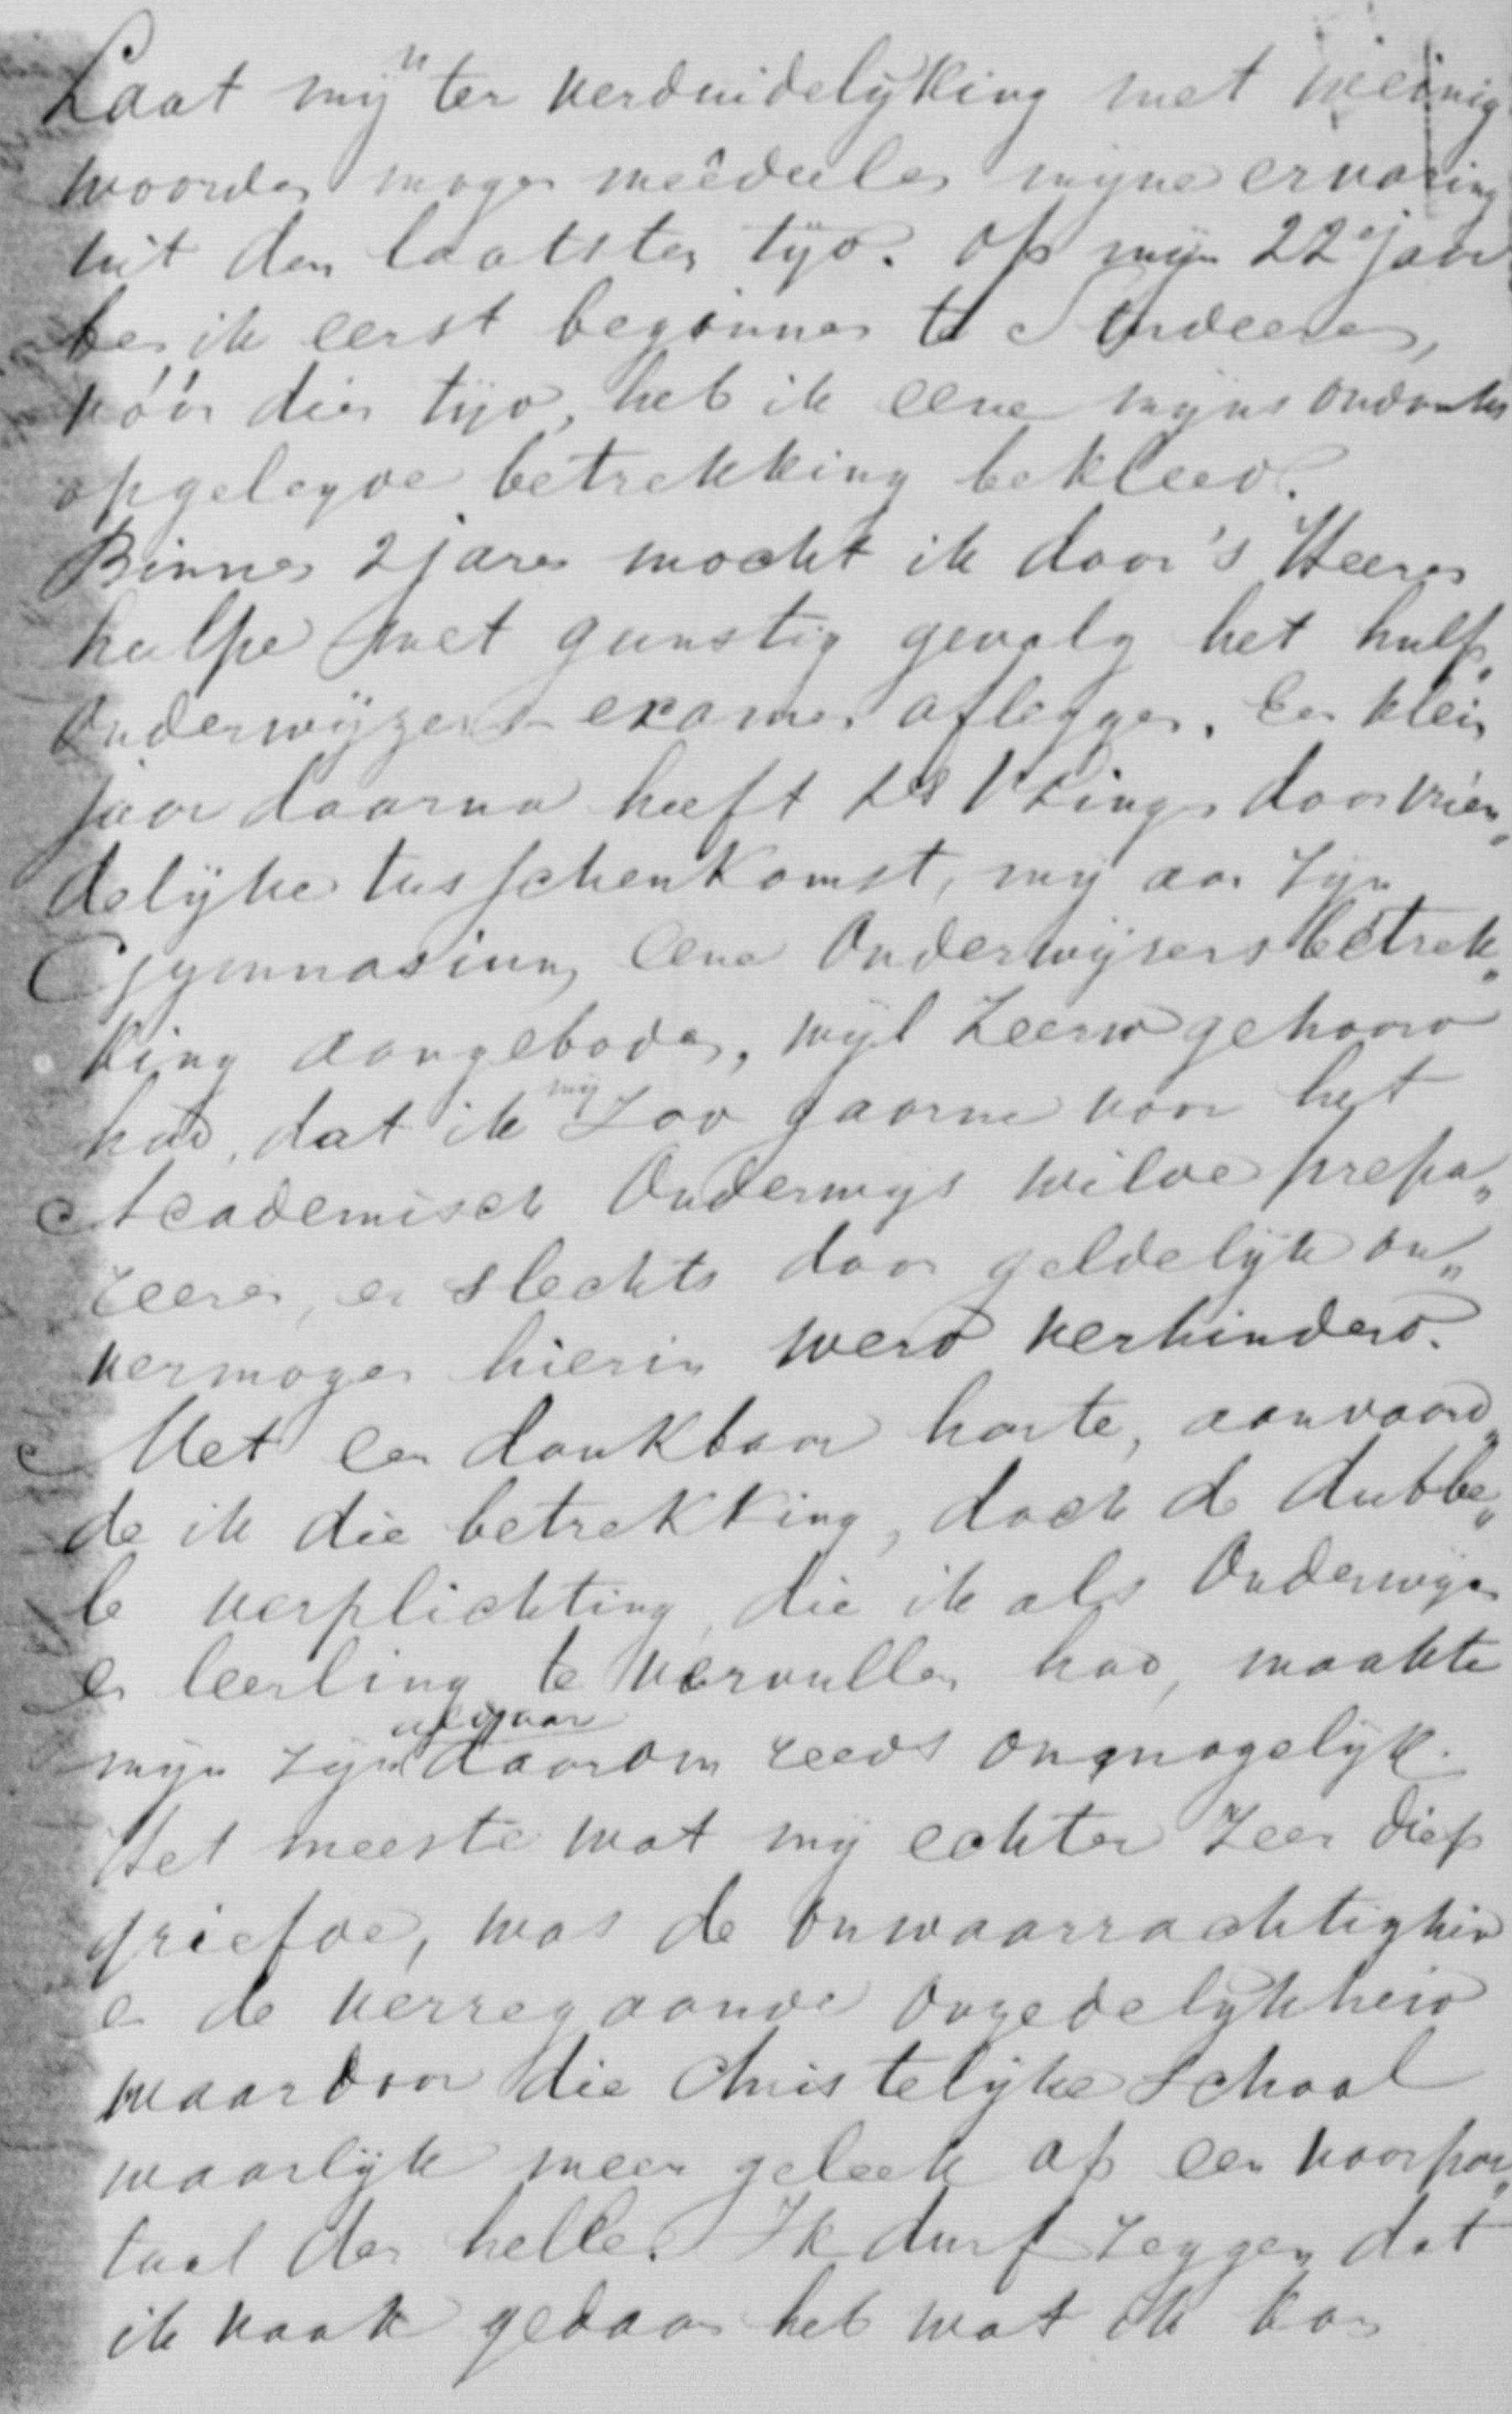 Laat mij u ter verduidelijking met weinig
woorden mogen meêdeelen mijne ervaring
uit den laatsten tijd. Op mijn 22e jaar
ben ik eerst begonnen te Studeeren,
vóór dien tijd, heb ik eene mijns ondanks
opgelegde betrekking bekleed.
Binnen 2 jaren mocht ik door 's Heeren
hulpe met gunstig gevolg het hulp„
Onderwijzers-examen afleggen. Een klein
jaar daarna heeft Ds door vrien„
delijke tusschenkomst, mij aan zijn
Gymnasium, eene Onderwijzersbetrek„
king aangeboden, wijl ZEerw gehoord
had, dat ik mij zoo gaarne voor het
Academisch Onderwijs wilde prepa„
reeren, en slechts door geldelijk on„
vermogen hierin werd verhinderd.
Met een dankbaar harte, aanvaard„
de ik die betrekking, doch de dubbe„
le verplichting, die ik als Onderwijzer
en leerling te vervullen had, maakte
mijn zijn aldaar daarom reeds onmogelijk.
Het meeste wat mij echter zeer diep
griefde, was de onwaarachtigheid
en de verregaande ongedelijkheid
waardoor die Christelijke School
waarlijk meer geleek op een voorpor„
taal der helle. Ik durf zeggen dat
ik vaak gedaan heb wat ik kon